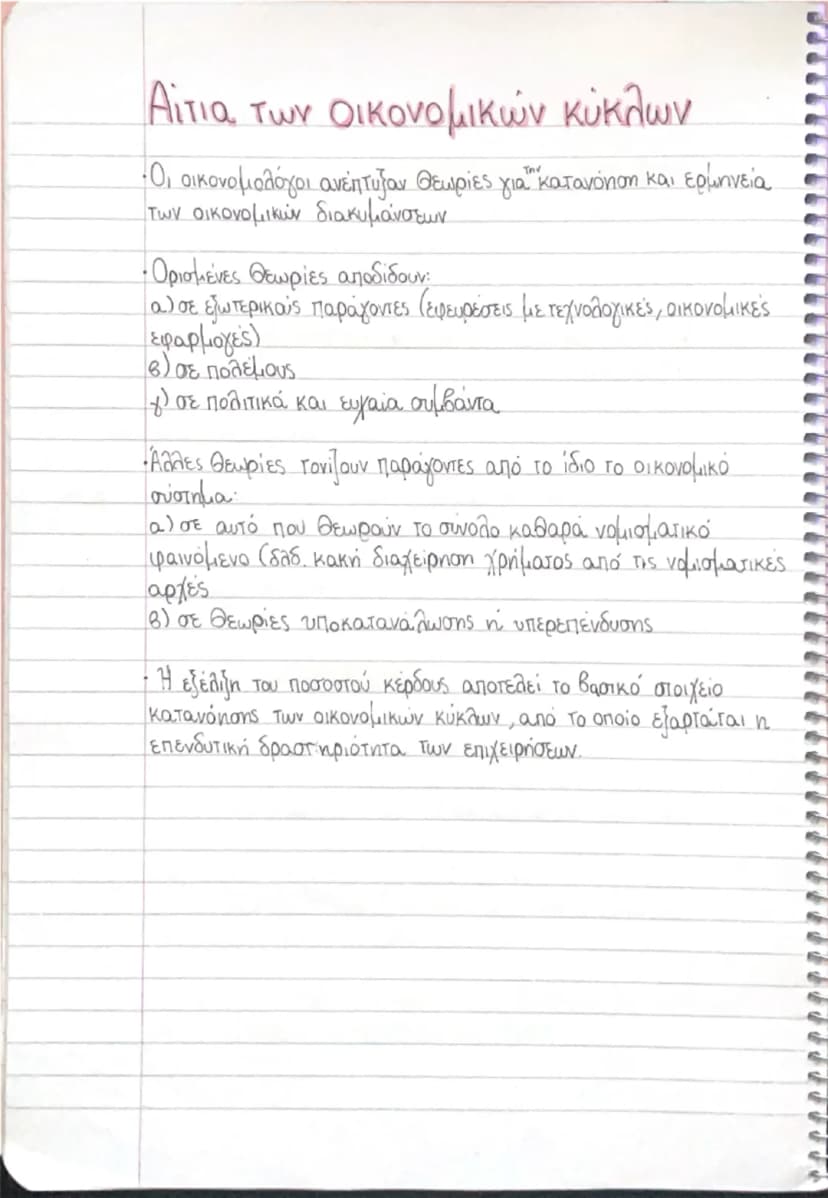 Αίτια των οικονομικών κύκλων
·Οι οικονομολόγοι ανέπτυξαν θεωρίες για την κατανόηση και ερμηνεία
των οικονομικών διακυμάνσεων
·Ορισμένες θεωρίες αποδίδουν:
α) σε εξωτερικούς παράγοντες (εφευρέσεις με τεχνολογικές, οικονομικές
εφαρμογές)
β) σε πολέμους
γ) σε πολιτικά και τυχαία συμβάντα
·Άλλες θεωρίες τονίζουν παράγοντες από το ίδιο το οικονομικό
σύστημα:
α) σε αυτό που θεωρούν το σύνολο καθαρά νομισματικό
φαινόμενο (δλδ. κακή διαχείρηση χρήματος από τις νομισματικές
αρχές
β) σε θεωρίες υποκατανάλωσης ή υπερεπένδυσης
· Η εξέλιξη του ποσοστού κέρδους αποτελεί το βασικό στοιχείο
κατανόησης των οικονομικών κύκλων, από το οποίο εξαρτάται η
επενδυτική δραστηριότητα των επιχειρήσεων.